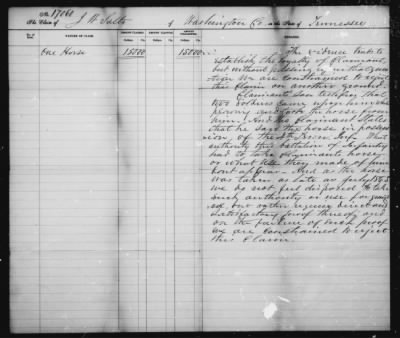 No. 17060
The Claim of J. W. Salts of Washington Co. in the State of Tennessee
No. of Item. NATURE OF CLAIM. AMOUNT CLAIMED. AMOUNT ALLOWED. AMOUNT DISALLOWED. REMARKS.
Dollars. Cts. Dollars. Cts. Dollars. Cts.
One Horse 150 00 150 00
The evidence tends to
establish the loyalty of Claimant
but without passing upon that ques
tion we are constrained to reject
this Claim on another ground.
Claimants Son testifies that
two soldiers came upon him
and took the horse from
him. And the Claimant States
that he saw the horse in possess
ion of the Tenn. Infy. What
authority this battalion of Infantry
had to take claimants horse,
or what use they made of him
dont appear. And as the horse
was taken as late as July 1865
we do not feel disposed to take
such authority or use for grant
ed, but rather require direct and
satisfactory proof thereof and
on the failure of such proof
we are constrained to reject
this Claim.